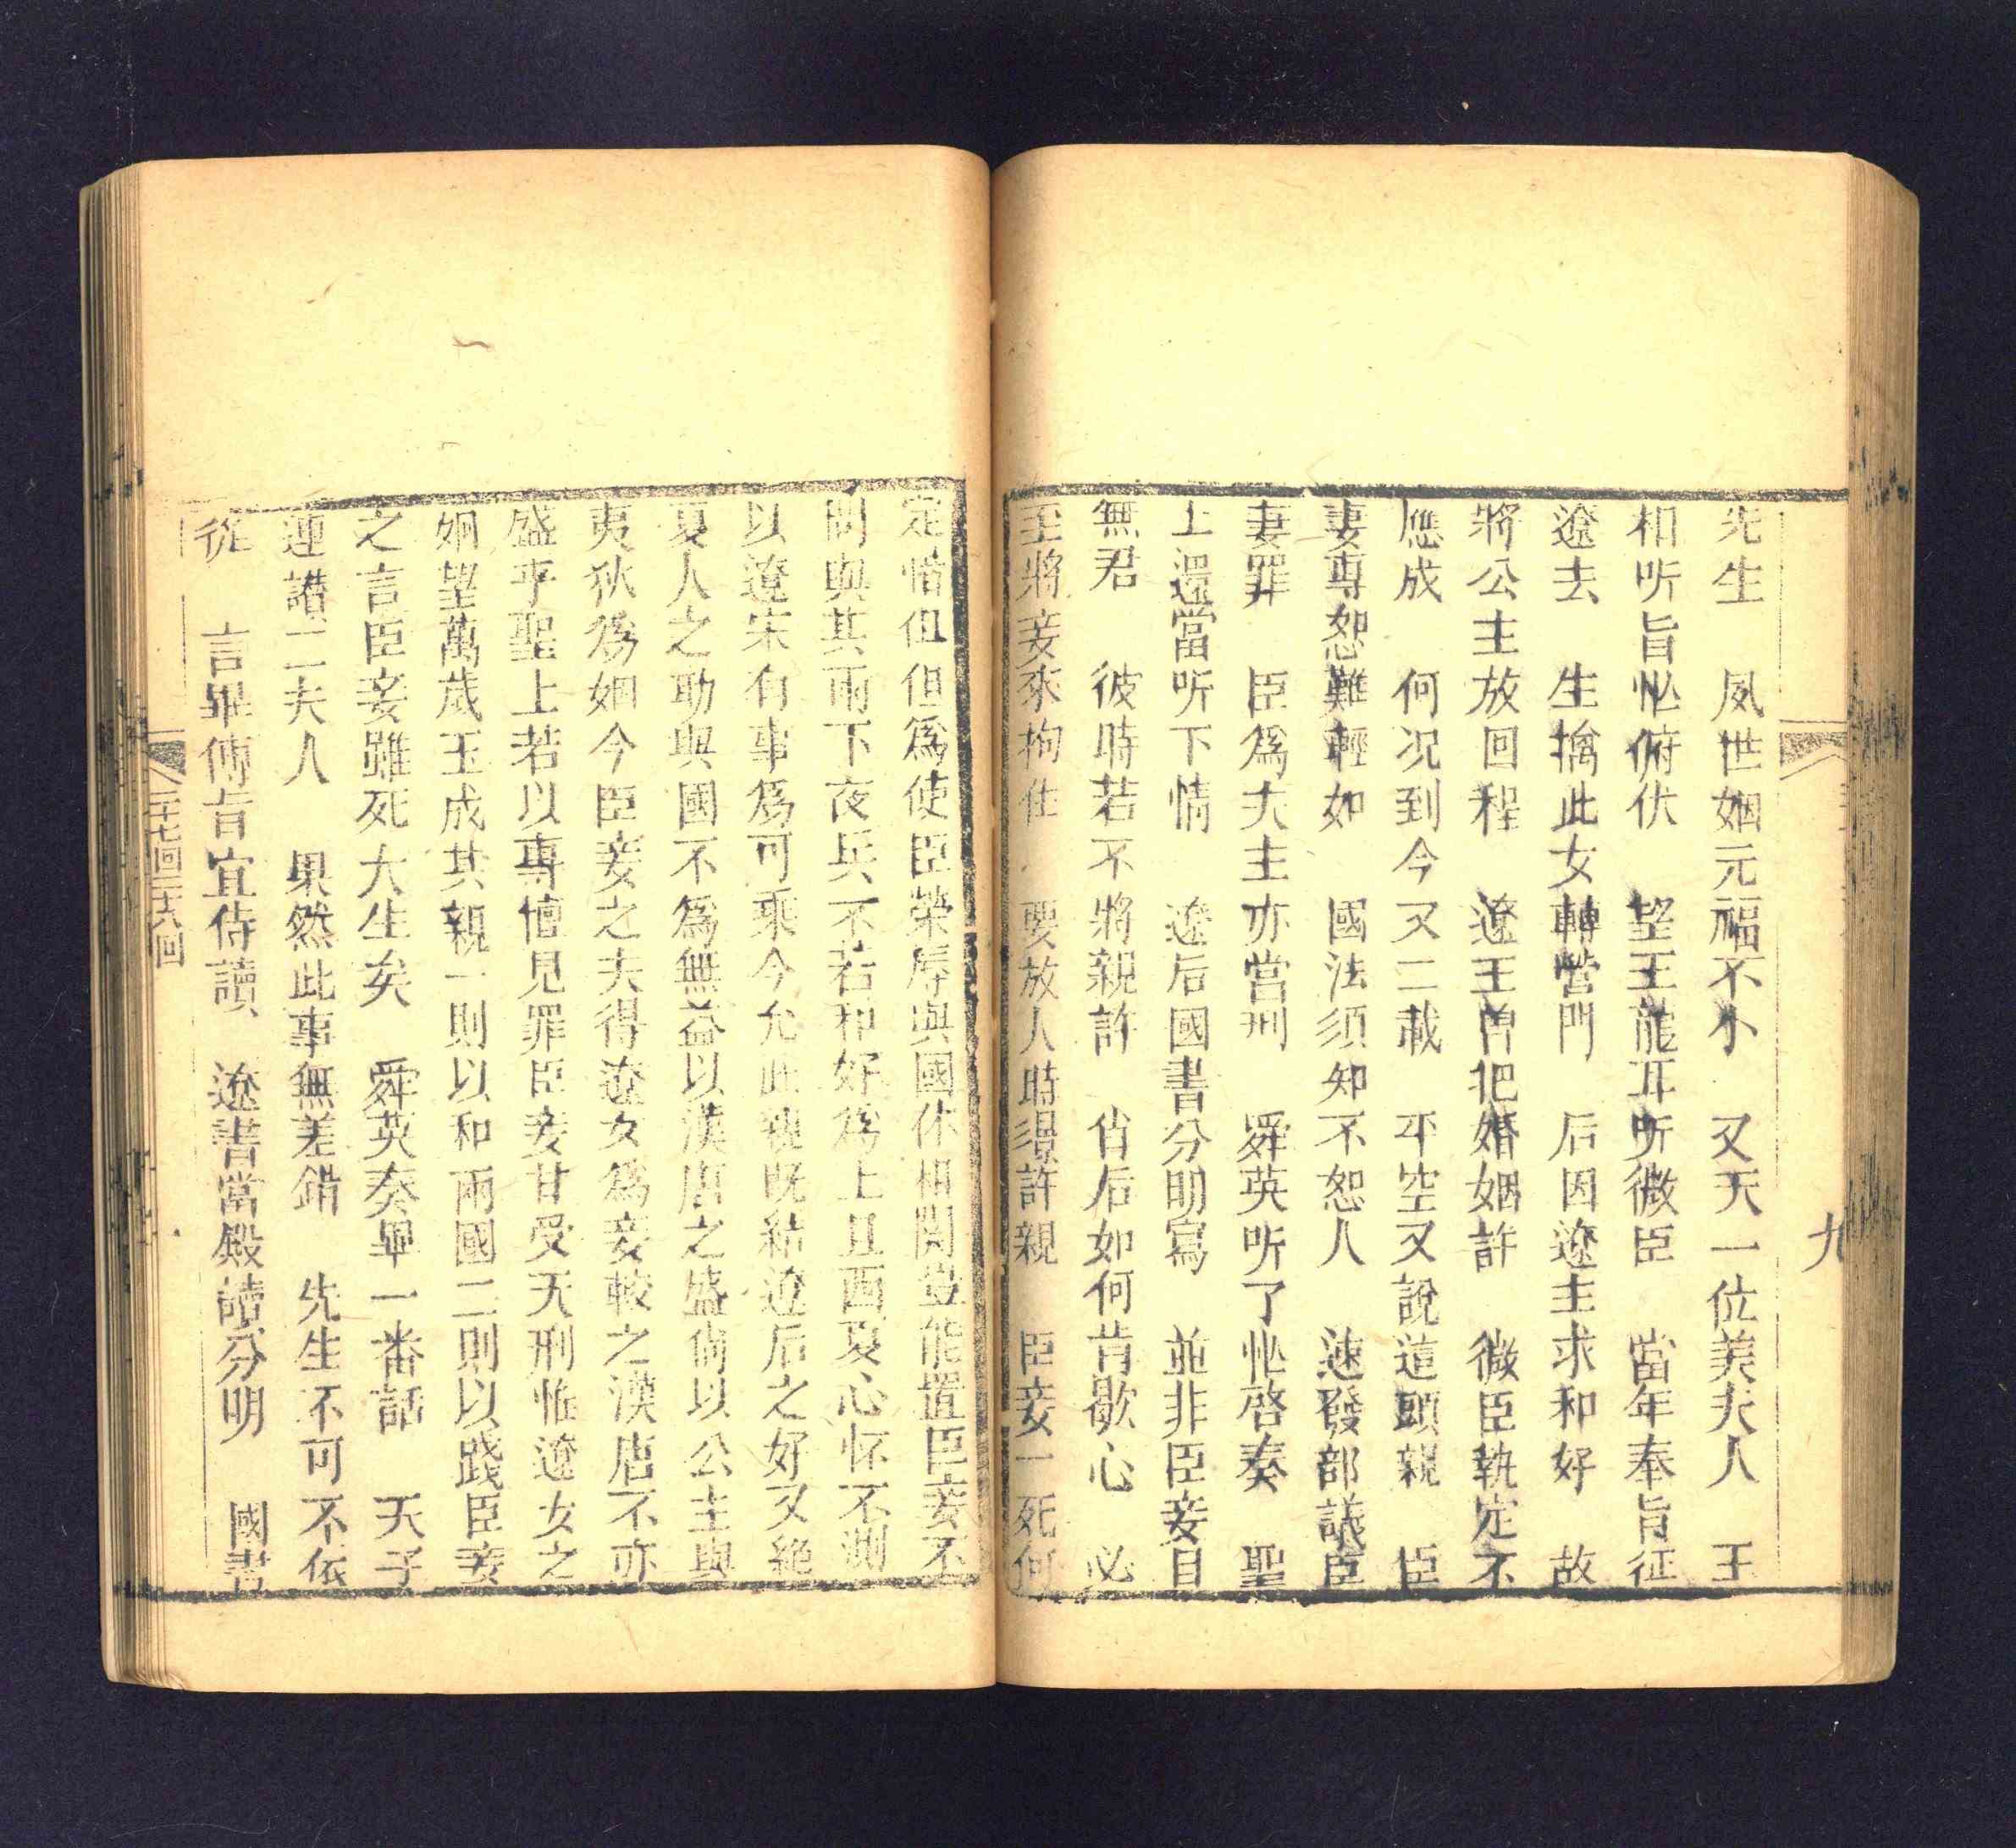 九
先生　夙世姻元福不小　又天一位美夫人　王
相听旨忙俯伏　望王龍耳听微臣　當年奉旨征
遼去　生擒此女轉營門　后因遼主求和好　故
將公主放回程　遼王曾把婚姻許　微臣執定不
應成　何况到今又二載　平空又說這頭親　臣
妻專恕難輕如　國法須知不恕人　速發部議臣
妻罪　臣爲夫主亦當刑　舜英听了忙啓奏　聖
上還當听下情　遼后國書分明寫　並非臣妾目
無君　彼時若不將親許　俏后如何肯歇心　必
至將妾來拘住　要放人時須許親　臣妾一死何
定惜但但爲使臣榮辱與國休相関豈能置臣妾不
問與其兩下夜兵不若和好爲上且西夏心怀不測
以遼宋有事爲可乘今允此親既結遼后之好又絶
夏人之助與國不爲無益以漢唐之盛尙以公主與
夷狄爲姻今臣妾之夫得遼女爲妾較之漢唐不亦
盛乎聖上若以專擅見罪臣妾甘受天刑惟遼女之
姻望萬歲玉成其親一則以和兩國二則以踐臣妾
之言臣妾雖死大生矣　舜英奏畢一番話　天子
連讃二夫人　果然此事無差錯　先生不可不依
從　言畢傅旨宜侍讀　遼書當殿讀分明　國書
二十七回二十八回